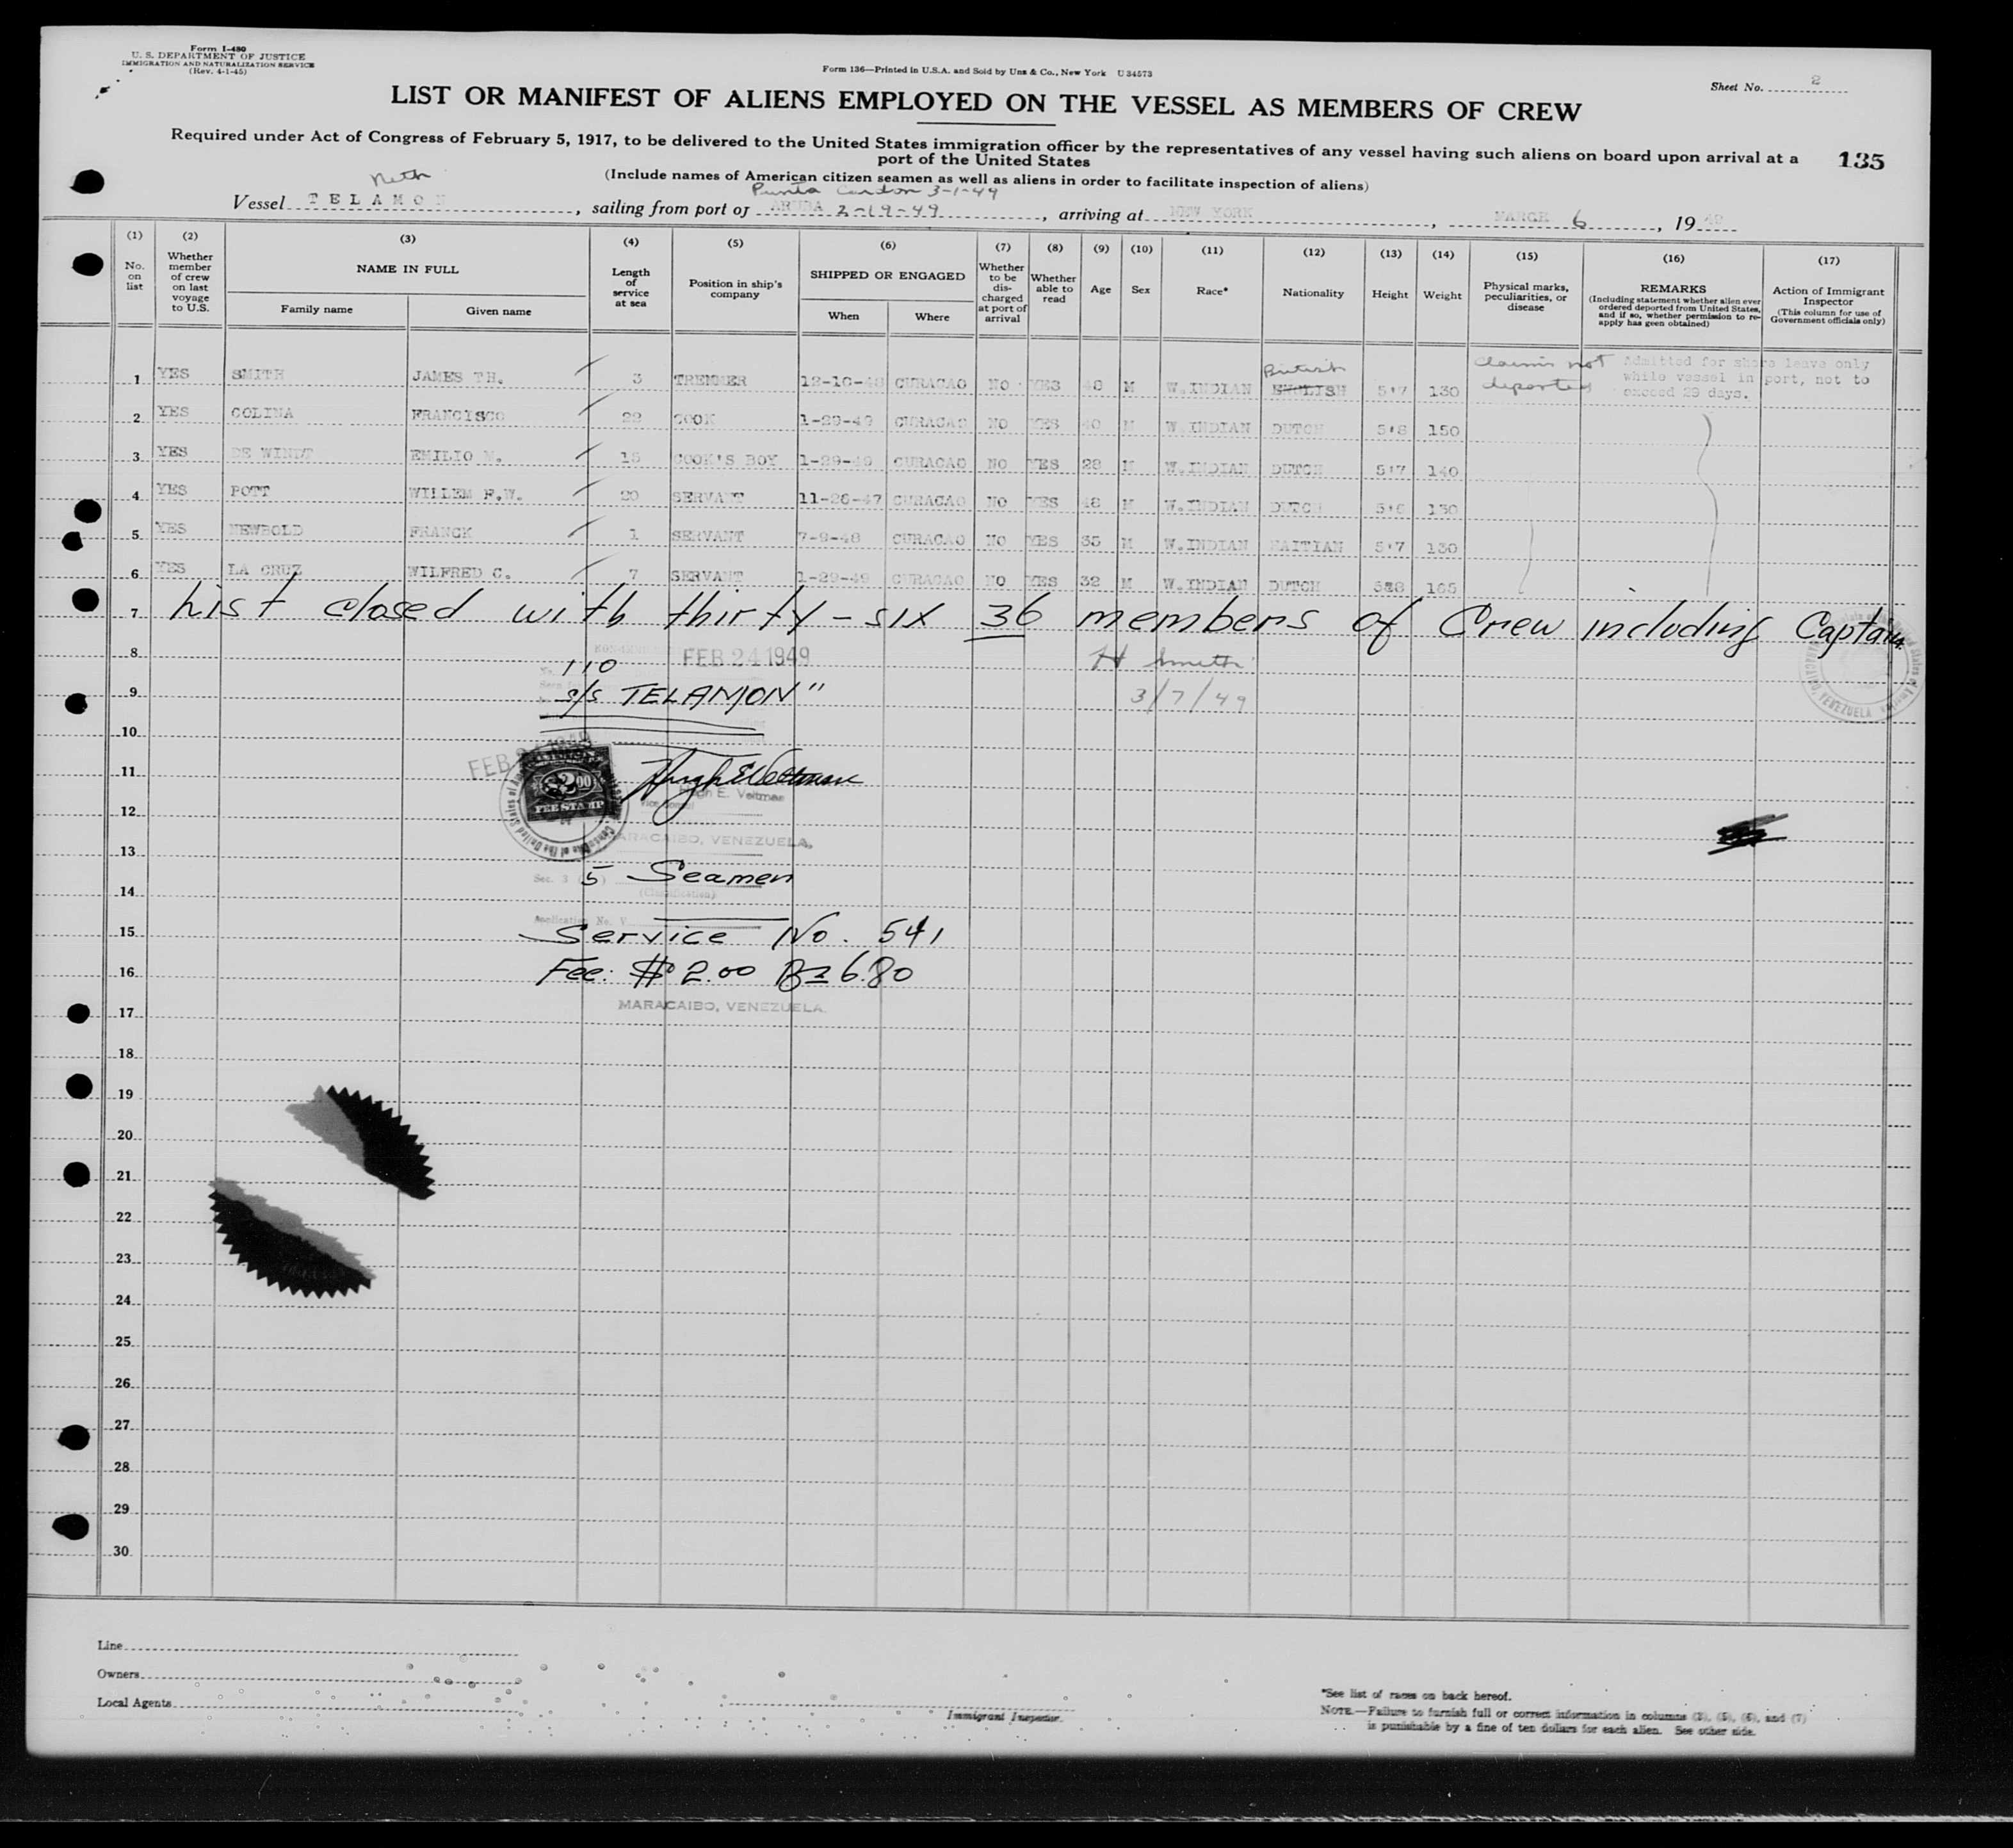 Form I-480
U. S. DEPARTMENT OF JUSTICE
IMMIGRATION AND NATURALIZATION SERVICE
(Rev. 4-1-45)
Form 136—Printed in U.S.A. and Sold by Unz & Co., New York U 34573
Sheet No. 2
LIST OR MANIFEST OF ALIENS EMPLOYED ON THE VESSEL AS MEMBERS OF CREW
Required under Act of Congress of February 5, 1917, to be delivered to the United States immigration officer by the representatives of any vessel having such aliens on board upon arrival at a
port of the United States
135
(Include names of American citizen seamen as well as aliens in order to facilitate inspection of aliens)
Neth Punta Cardon 3-1-49
Vessel TELAMON, sailing from port of ARUBA 2-19-49, arriving at NEW YORK, MARCH 6, 19
(1) (2) (3) (4) (5) (6) (7) (8) (9) (10) (11) (12) (13) (14) (15) (16) (17)
No. on list
Whether member of crew on last voyage to U.S.
NAME IN FULL
Family name Given name
Length of service at sea
Position in ship's company
SHIPPED OR ENGAGED
When Where
Whether to be discharged at port of arrival
Whether able to read
Age
Sex
Race*
Nationality
Height
Weight
Physical marks, peculiarities, or disease
REMARKS
(Including statement whether alien ever ordered deported from United States, and if so, whether permission to re-apply has geen obtained)
Action of Immigrant Inspector
(This column for use of Government officials only)
British claims not deported
Admitted for shore leave only
while vessel in port, not to
exceed 29 days.
1 YES SMITH JAMES TH. 3 TREMMER 12-10-48 CURACAO NO YES 48 M W.INDIAN ENGLISH 5'7 130
2 YES COLINA FRANCISCO 22 COOK 1-29-49 CURACAO NO YES 40 M W.INDIAN DUTCH 5'8 150
3 YES DE WINDT EMILIO COOK'S BOY 1-29-49 CURACAO NO YES 28 M W.INDIAN DUTCH 5'7 140
4 YES POTT WILLEM F.W. 20 SERVANT 11-26-47 CURACAO NO YES 48 M W.INDIAN DUTCH 130
5 YES NEWBOLD FRANCK 1 SERVANT 7-9-48 CURACAO NO YES 35 M W.INDIAN HAITIAN 5'7 130
6 YES LA CRUZ WILFRED C. 7 SERVANT 1-29-49 CURACAO NO YES 32 M W.INDIAN DUTCH 165
7 List closed with thirty-six 36 members of Crew including Captain
8 110 FEB 24 1949 H Smith
9 S/S TELAMON" 3/7/49
10
FEB
11
$2.00
FEE STAMP
Hugh E. Veltman
Vice Consul
12
MARACAIBO, VENEZUELA.
13
Sec. 3 (5) Seamen
14
(Classification)
Application No. V
15 Service No. 541
16 Fee: $2.00 Bs 6.80
17 MARACAIBO, VENEZUELA
18
19
20
21
22
23
24
25
26
27
28
29
30
Line
Owners
Local Agents
Immigrant Inspector.
*See list of races on back hereof.
NOTE.—Failure to furnish full or correct information in columns (3), (5), (6), and (7)
is punishable by a fine of ten dollars for each alien. See other side.